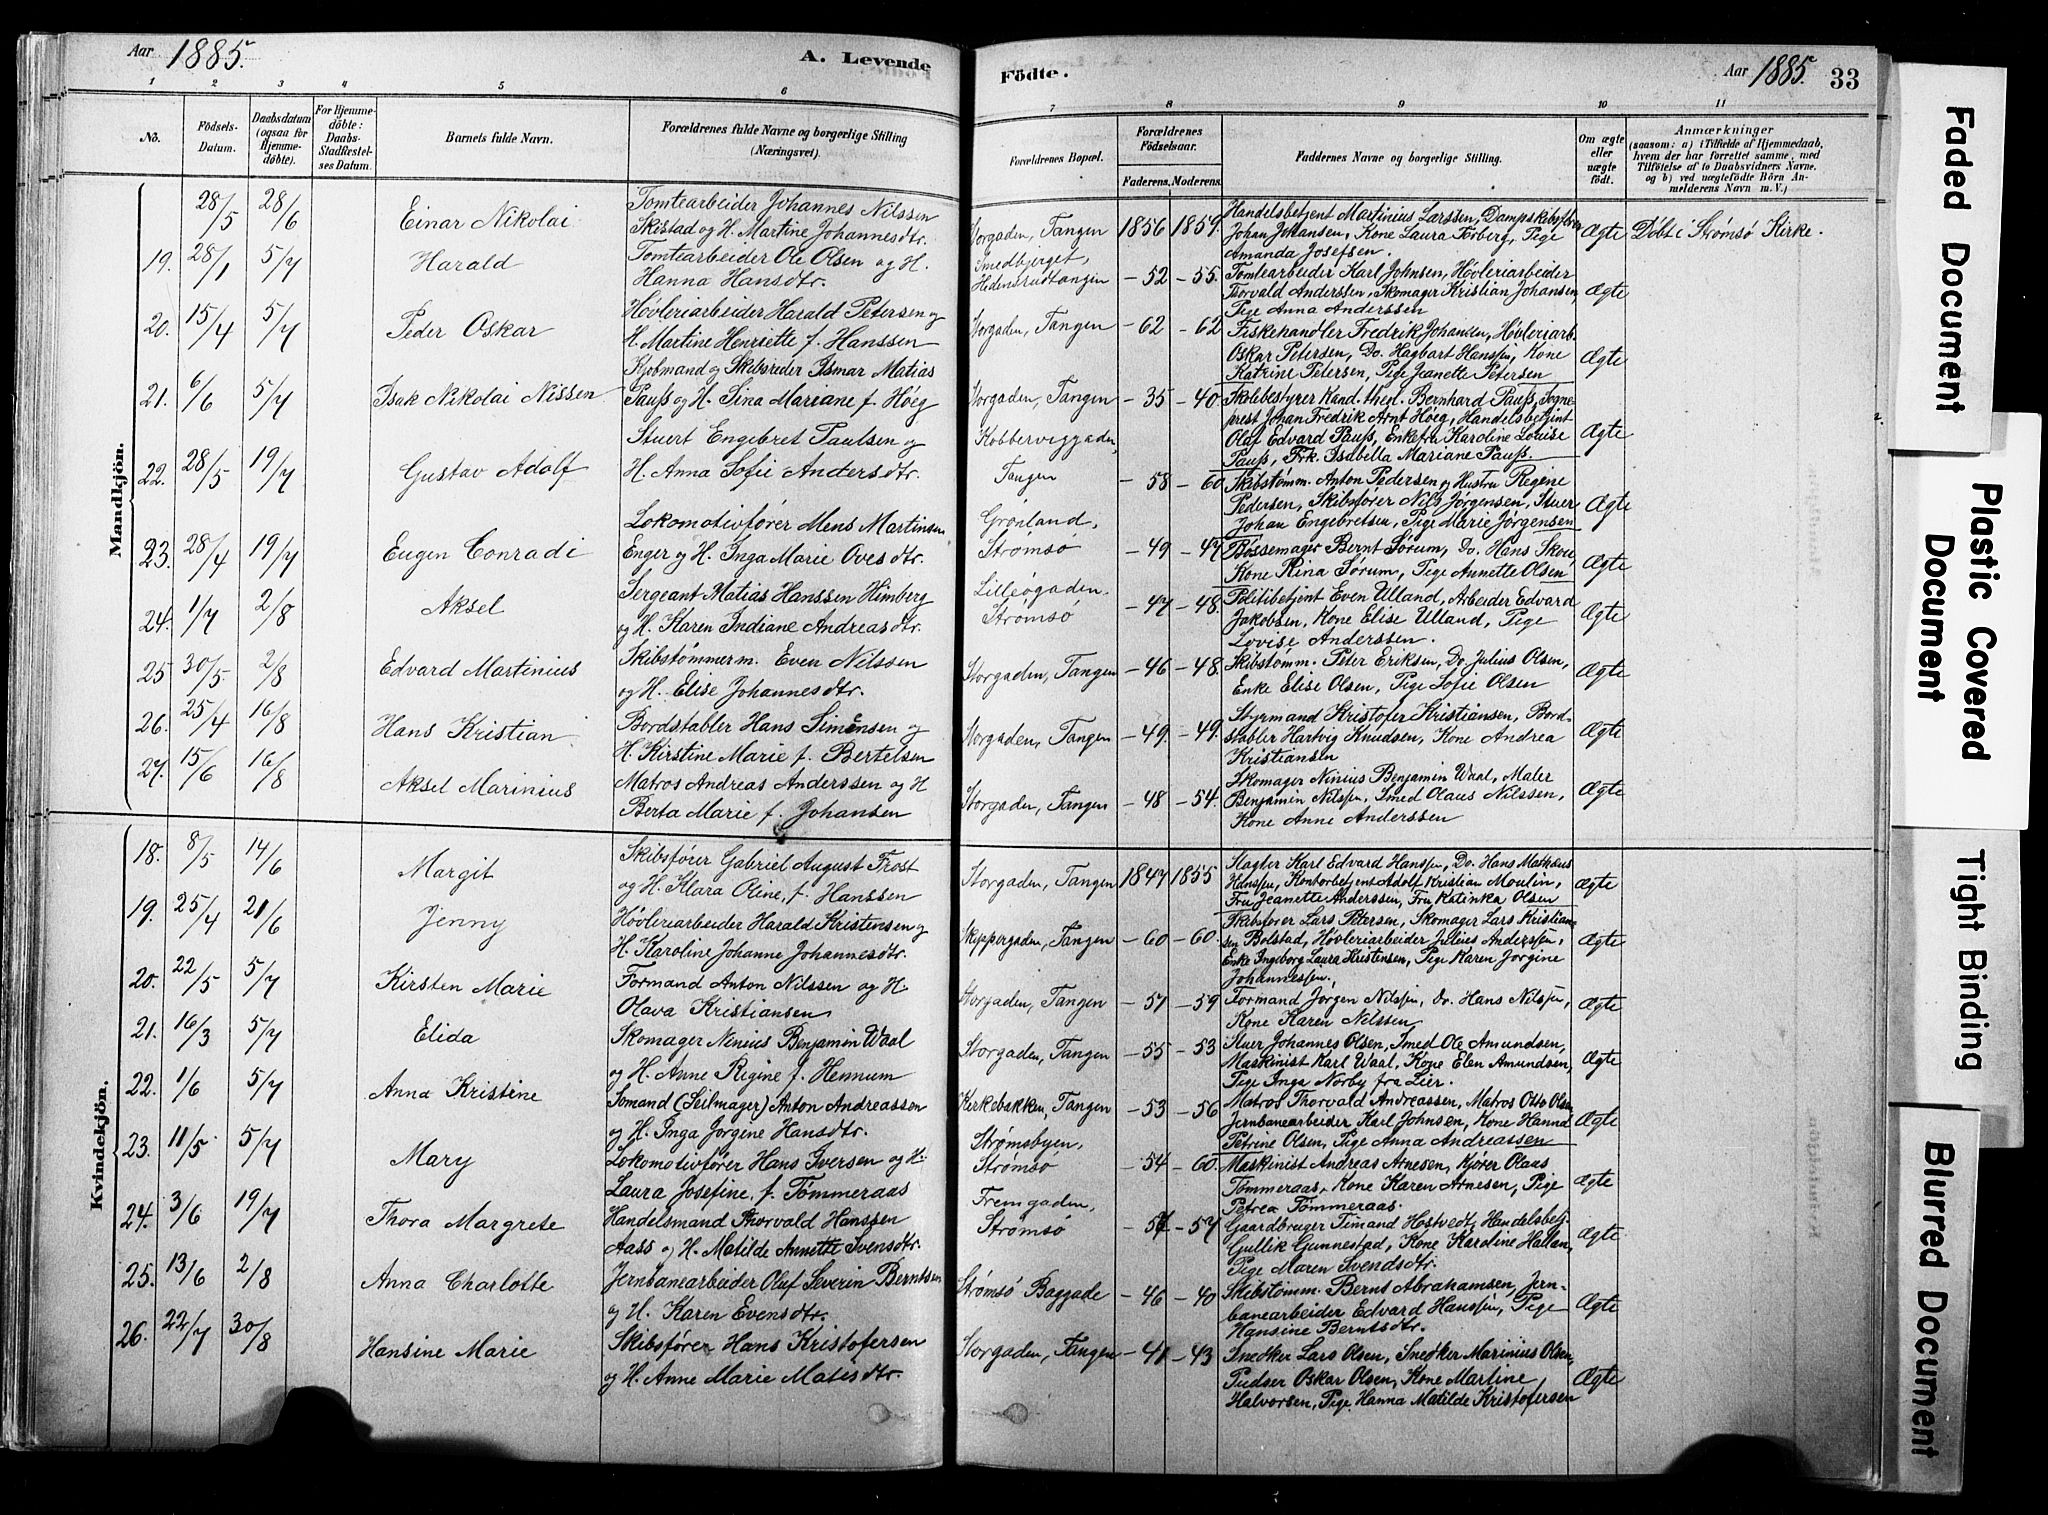 Aar 1885.
A. Levende
1 2 3 4 5 6
No.
Födsels-Datum.
Daabsdatum (ogsaa for Hjemmedöbte).
For Hjemmedöbte: Daabs-Stadfæstelses Datum.
Barnets fulde Navn.
Forældrenes fulde Navne og borgerlige Stilling
(Næringsvei).
Mandkjön.
28/5 28/6 Einar Nikolai Tomtearbeider Johannes Nilssen
Skistad og H. Martine Johannesdtr.
19. 28/1 5/7 Harald Tomtearbeider Ole Olsen og H.
Hanna Hansdtr.
20. 15/4 5/7 Peder Oskar Høvleriarbeider Harald Petersen og
H. Martine Henriette f. Hanssen
21. 6/6 5/7 Isak Nikolai Nissen Kjøbmand og Skibsreder Ismar Matias
Pauss og H. Sina Mariane f. Høeg
22. 28/5 19/7 Gustav Adolf Stuert Engebret Paulsen og
H. Anna Sofie Andersdtr.
23. 28/4 19/7 Eugen Conradi Lokomotivfører Mens Martinsen
Enger og H. Inga Marie Ovesdtr.
24. 1/7 2/8 Aksel Sergeant Matias Hanssen Himberg
og H. Karen Indiane Andreasdtr.
25 30/5 2/8 Edvard Martinius Skibstømmerm. Even Nilssen
og H. Elise Johannesdtr.
26. 25/4 16/8 Hans Kristian Bordstabler Hans Simensen og
H. Kirstine Marie f. Bertelsen
27. 15/6 16/8 Aksel Marinius Matros Andreas Anderssen og H
Berta Marie f. Johansen
Kvindekjön.
18. 8/5 14/6 Margit Skibsfører Gabriel August Frost
og H. Klara Oline, f. Hanssen
19. 25/4 21/6 Jenny Høvleriarbeider Harald Kristensen og
H. Karoline Johanne Johannesdtr.
20. 22/5 5/7 Kirsten Marie Formand Anton Nilssen og H.
Olava Kristiansen
21. 16/3 5/7 Elida Skomager Ninius Benjamin Waal
og H. Anne Regine f. Hennum
22. 1/6 5/7 Anna Kristine Sømand (Seilmager) Anton Andreassen
og H. Inga Jørgine Hansdtr.
23. 11/5 5/7 Mary Lokomotivfører Hans Iversen og H.
Laura Josefine, f. Tømmeraas
24. 3/6 19/7 Thora Margrete Handelsmand Thorvald Hanssen
Aass og H. Matilde Annette Svensdtr.
25. 13/6 2/8 Anna Charlotte Jernbanearbeider Oluf Severin Berntsen
og H. Karen Evensdtr.
26. 22/7 30/8 Hansine Marie Skibsfører Hans Kristofersen
og H. Anne Marie Matisdtr.
Födte.
Aar 1885. 33
7 8 9 10 11
Forældrenes Bopæl.
Forældrenes Födselsaar.
Faderens. Moderens.
Faddernes Navne og borgerlige Stilling.
Om ægte eller uægte födt.
Anmærkninger
(saasom: a) i Tilfælde af Hjemmedaab,
hvem der har forrettet samme, med
Tilföielse af to Daabsvidners Navne.
og b) ved uægtefödte Börn Anmelderens Navn m. V.)
Storgaden, Tangen 1856 1859. Handelsbetjent Martinius Larssen, Dampskibsfører
Johan Johansen, Kone Laura Forberg, Pige
Amanda Josefsen. Ægte Døbt i Strømsø Kirke.
Smedbjerget,
Hedensrudtangen - 52 - 55. Tomtearbeider Karl Johnsen, Høvleriarbeider
Torvald Anderssen, Skomager Kristian Johansen,
Pige Anna Anderssen Ægte
Storgaden, Tangen - 62 - 62. Fiskehandler Fredrik Johansen, Høvleriarb.
Oskar Petersen, Do. Hagbart Hanssen, Kone
Katrine Petersen, Pige Jeanette Petersen Ægte
Storgaden, Tangen - 35 - 40. Skolebestyrer Kand. theol. Bernhard Pauss, Sogneprest
Johan Fredrik Arnt Høeg, Handelsbetjent
Oluf Edvard Pauss, Enkefru Karoline Louise
Pauss, Frk. Isabella Mariane Pauss. Ægte
Kobberviggaden,
Tangen - 58 - 60 Skibstømm. Anton Pedersen og Hustru Regine
Pedersen, Skibsfører Nils Jørgensen, Stuer
Johan Engebretsen, Pige Marie Jørgensen Ægte
Grønland,
Strømsø - 49 - 47 Bøssemager Bernt Sørum, Do. Hans Skou,
Kone Rina Sørum, Pige Annette Olsen Ægte
Lilleøgaden,
Strømsø - 47 - 48. Politibetjent Even Ulland, Arbeider Edvard
Jakobsen, Kone Elise Ulland, Pige
Lovise Anderssen. Ægte
Storgaden, Tangen - 46 - 48. Skibstømm. Peter Eriksen, Do. Julius Olsen,
Enke Elise Olsen, Pige Sofie Olsen Ægte
Storgaden, Tangen - 49. - 49. Styrmand Kristofer Kristiansen, Bordstabler
Hartvig Knudsen, Kone Andrea
Kristiansen Ægte
Storgaden, Tangen - 48 - 54. Skomager Ninius Benjamin Waal, Maler
Benjamin Nilssen, Smed Olaus Nilssen,
Kone Anne Anderssen Ægte
Storgaden, Tangen 1847 1855 Slagter Karl Edvard Hanssen, Do. Hans Mathæus
Hanssen, Kontorbetjent Adolf Kristian Moulin,
Fru Jeanette Anderssen, Fru Katinka Olsen Ægte
Skippergaden, Tangen - 60 - 60. Skibsfører Lars Petersen, Skomager Lars Kristiansen
Bolstad, Høvleriarbeider Julius Anderssen,
Enke Ingeborg Laura Kristensen, Pige Karen Jørgine
Johannessen. Ægte
Storgaden, Tangen - 57 - 59 Formand Jørgen Nilssen, Do. Hans Nilssen,
Kone Karen Nilssen Ægte
Storgaden, Tangen - 55 - 53 Stuer Johannes Olsen, Smed Ole Amundsen,
Maskinist Karl Waal, Kone Elen Amundsen,
Pige Inga Norby fra Lier. Ægte
Kirkebakken, Tangen - 53 - 56 Matros Thorvald Andreassen, Matros Otto Olsen
Jernbanearbeider Karl Johnsen, Kone Hanna
Petrine Olsen, Pige Anna Andreassen Ægte
Strømsbyen,
Strømsø - 54 - 60. Maskinist Andreas Arnesen, Kjører Olaas
Tømmeraas, Kone Karen Arnesen, Pige
Petrea Tømmeraas. Ægte
Fremgaden,
Strømsø - 57 Gaardbruger Timand Hostvedt, Handelsbetj.
Gullik Gunnestad, Kone Karoline Hallan,
Pige Maren Svendsdtr. Ægte
Strømsø Baggade - 46 - 40 Skibstømm. Bernt Abrahamsen, Jernbanearbeider
Edvard Hanssen, Pige
Hansine Berntsdtr. Ægte
Storgaden, Tangen - 41 - 43 Snedker Lars Olsen, Snedker Marinius Olsen,
Pudser Oskar Olsen, Kone Martine
Halvorsen, Pige Hanna Matilde Kristofersen Ægte
Faded Document
Plastic Covered Document
Tight Binding
Blurred Document